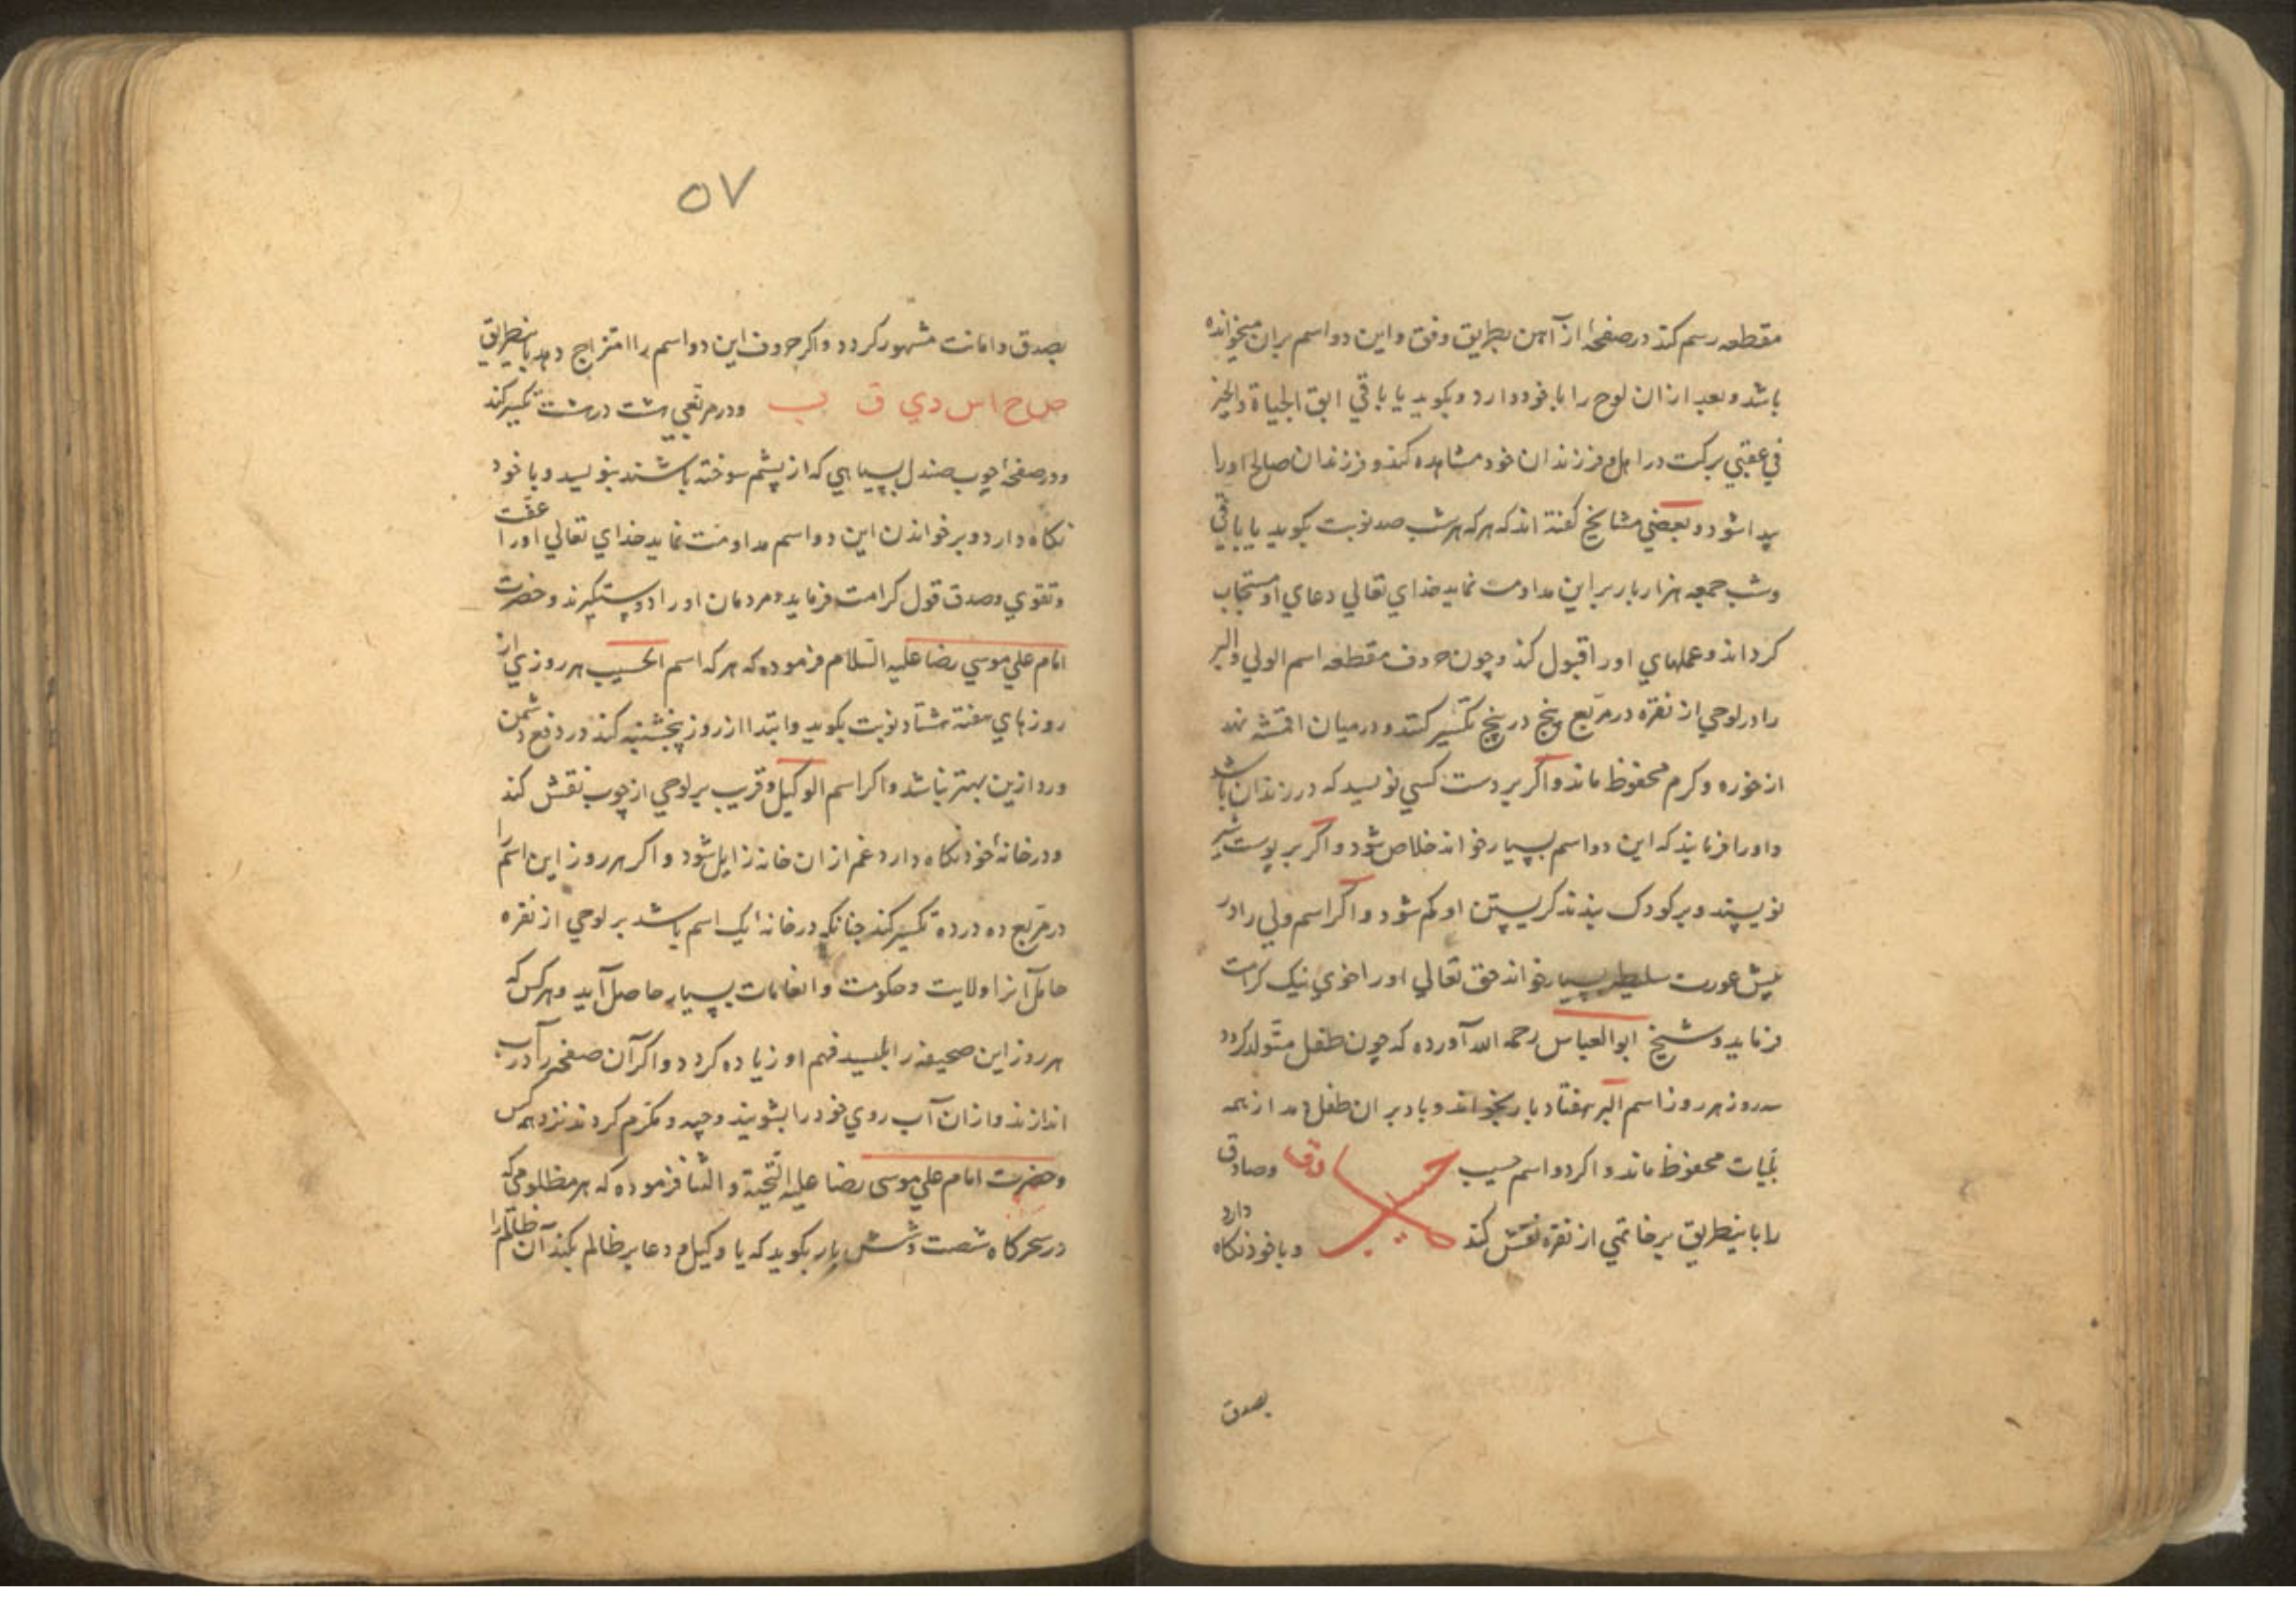 مقطعه رسم کند در صفحهٔ از آهن بطریق وفق و این دو اسم بران میخوانده
باشد و بعد ازان لوح را با خود دارد و بکوید یا باقی ابق الحیاة والخیر
في عقبي برکت در اهل و فرزندان خود مشاهده کند و فرزندان صالح او را
پیدا شود و بعضي مشایخ کفته اند که هر که هر شب صد نوبت بکوید یا باقي
و شب جمعه هزار بار بر این مداومت نماید خداي تعالي دعاي او مستجاب
کرداند و عملهاي او را قبول کند و چون حروف مقطعه اسم الولي والبر
را در لوحي از نقره در مربّع پنج در پنج تکسیر کنند و در میان اقمشه نهند
از خوره و کرم محفوظ ماند و اکر بر دست کسي نویسید که در زندان باشد
و او را فرمایند که این دو اسم بسیار خواند خلاص شود و اکر بر پوست شیر
نویسند و بر کودک بندند کریستن او کم شود و اکر اسم ولي را در
پیش عورت سلیطه بسیار خواند حق تعالي او را خوي نیک کرامت
فرماید و شیخ ابو العباس رحمه الله آورده که چون طفل متولد کردد
سه روز هر روز اسم البر هفتاد بار بخواند و باد بران طفل دمد از همه
بلیات محفوظ ماند و اکر دو اسم حسیب صادق حسیب وصادق
را باینطریق بر خاتمي از نقره نقش کند و با خود نکاه دارد
بصدق
۵۷
بصدق و امانت مشهور کردد و اکر حروف این دو اسم را امتزاج دهد باینطریق
ص ح ا س د ي ق ب و در مربّعي هشت در هشت تکسیر کند
و در صفحهٔ چوب صندل بسیاهي که از پشم سوخته باشند بنویسد و با خود
نکاه دارد و بر خواندن این دو اسم مداومت نماید خداي تعالي او را عفّت
و تقوي و صدق قول کرامت فرماید و مردمان او را دوست کیرند و حضرت
امام علي موسي رضا علیه السّلام فرموده که هر که اسم الحسیب هر روزي از
روزهاي هفته هشتاد نوبت بکوید و ابتدا از روز پنجشنبه کند در دفع دشمن
ورد ازین بهتر نباشد و اکر اسم الوکیل و قریب بر لوحي از چوب نقش کند
و در خانهٔ خود نکاه دارد غم ازان خانه زایل شود و اکر هر روز این اسم را
در مربّع ده در ده تکسیر کند چنانکه در خانهٔ یک اسم باشد بر لوحي از نقره
حامل آنرا ولایت و حکومت و انعامات بسیار حاصل آید و هر کس که
هر روز این صحیفه را بلیسد فهم او زیاده کردد و اکر آن صفحه را در آب
اندازند و ازان آب روي خود را بشویند وجیه و مکرم کردند نزد همه کس
و حضرت امام علي موسی رضا علیه التّحیة و الثنا فرموده که هر مظلومي که
در سحرکاه شصت و شش بار بکوید که یا وکیل و دعا بر ظالم بکند آن ظالم را